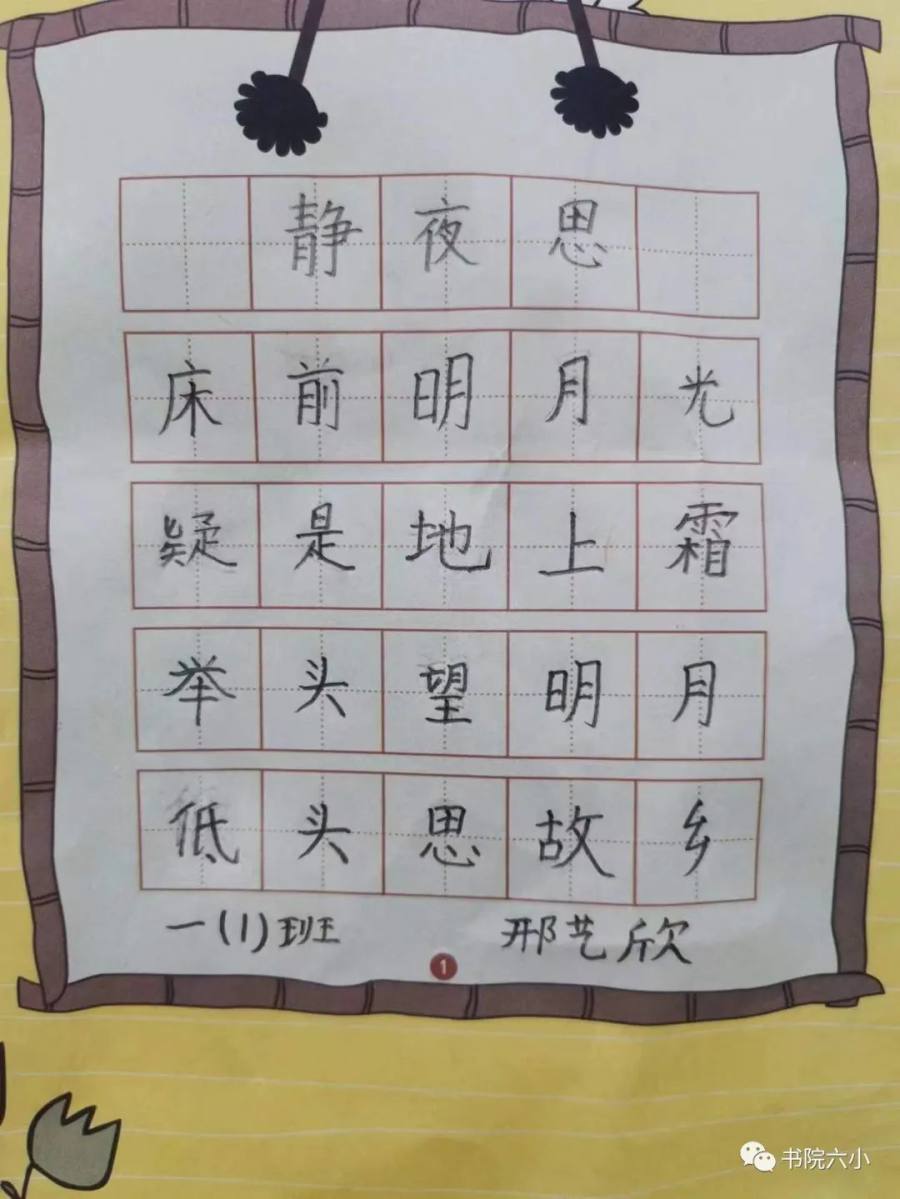 静夜思
床前明月光
疑是地上霜
举头望明月
低头思故乡
一(1)班 邢艺欣
1
书院六小